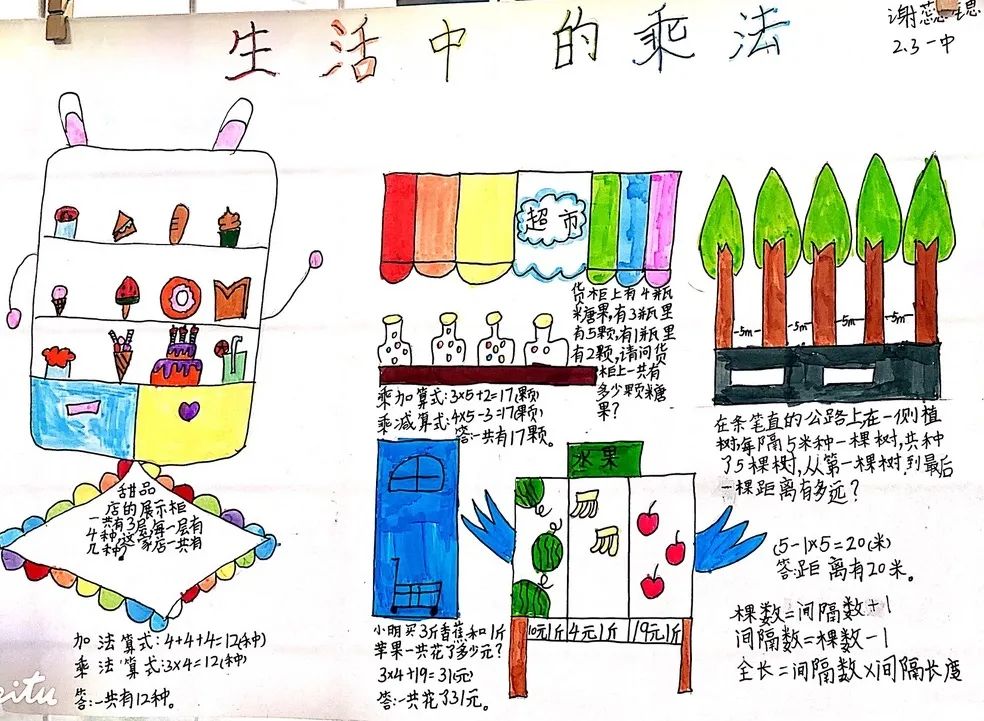 生活中的乘法
谢蕊锶
2.3一中
超市
货柜上有4瓶
糖果,有3瓶里
有5颗,有1瓶里
有2颗,请问货
柜上一共有
多少颗糖
果?
乘加算式:3×5+2=17(颗)
乘减算式:4×5-3=17(颗)
答:一共有17颗。
-5m-
-5m-
-5m-
-5m-
在条笔直的公路上,在一侧植
树,每隔5米种一棵树,共种
了5棵树,从第一棵树到最后
一棵距离有多远?
(5-1)×5=20(米)
答:距离有20米。
棵数=间隔数+1
间隔数=棵数-1
全长=间隔数×间隔长度
甜品
店的展示柜
一共有3层,每一层有
4种,这家店一共有
几种?
加法算式:4+4+4=12(种)
乘法算式:3×4=12(种)
答:一共有12种。
水果
10元1斤
4元1斤
19元1斤
小明买3斤香蕉和1斤
苹果一共花了多少元?
3×4+19=31(元)
答:一共花了31元。
eitu